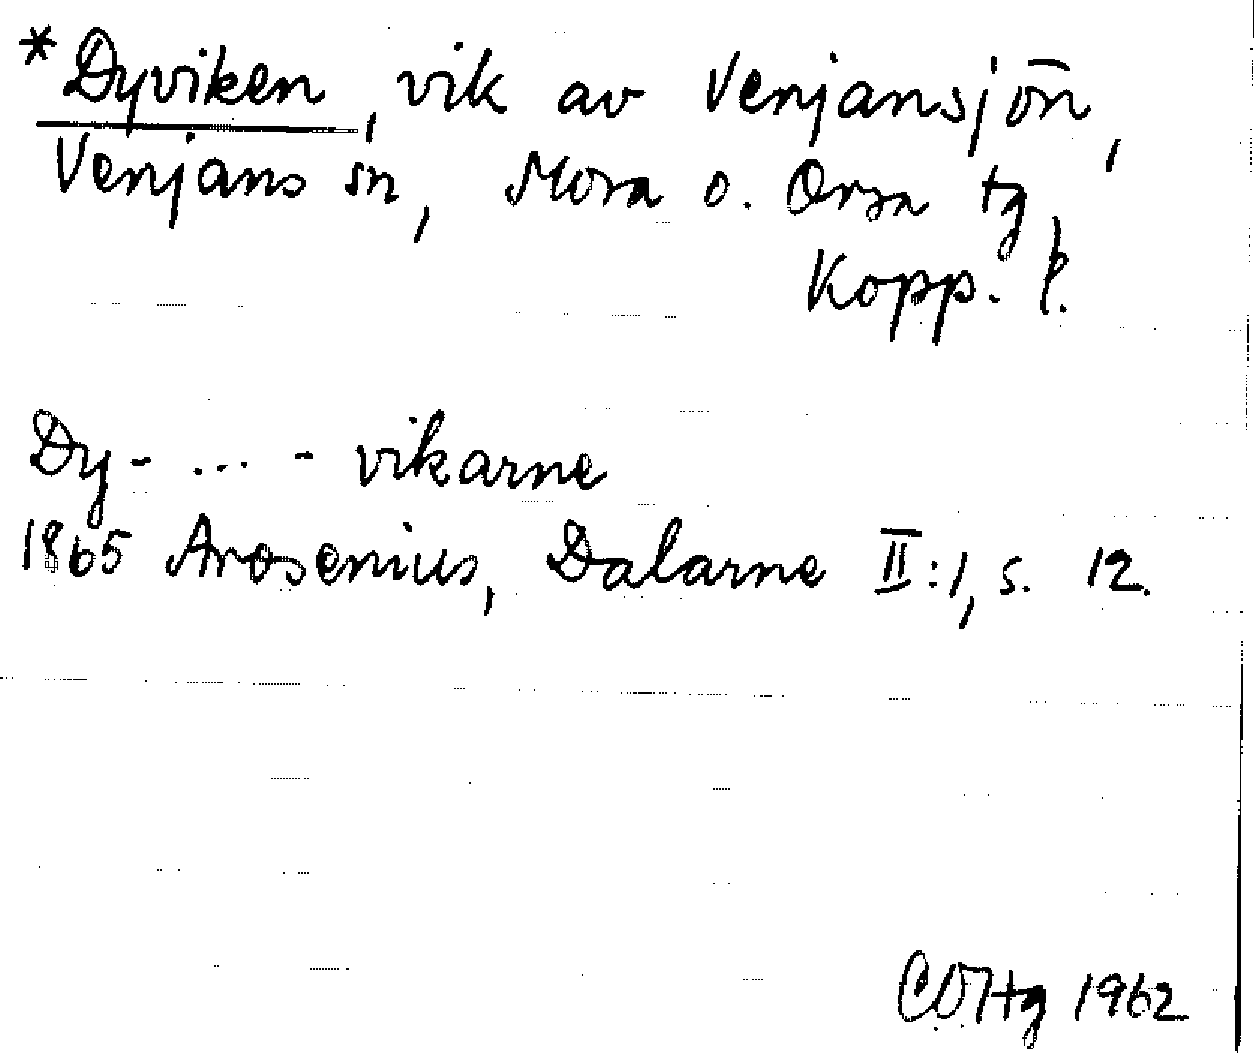 *Dyviken, vik av Venjansjön,
Venjans sn, Mora o. Orsa tg
Kopp. l.
Dy- ... - vikarne
1865 Arosenius, Dalarne II:1, s. 12.
1962